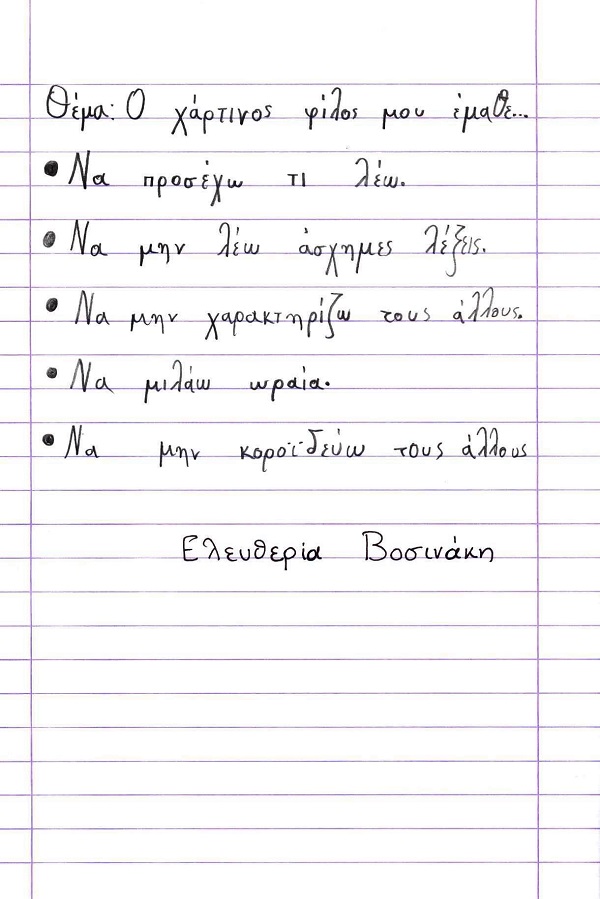 Θέμα: Ο χάρτινος φίλος μου έμαθε...
• Να προσέχω τι λέω.
• Να μην λέω άσχημες λέξεις.
• Να μην χαρακτηρίζω τους άλλους.
• Να μιλάω ωραία.
• Να μην κοροϊδεύω τους άλλους
Ελευθερία Βοσινάκη